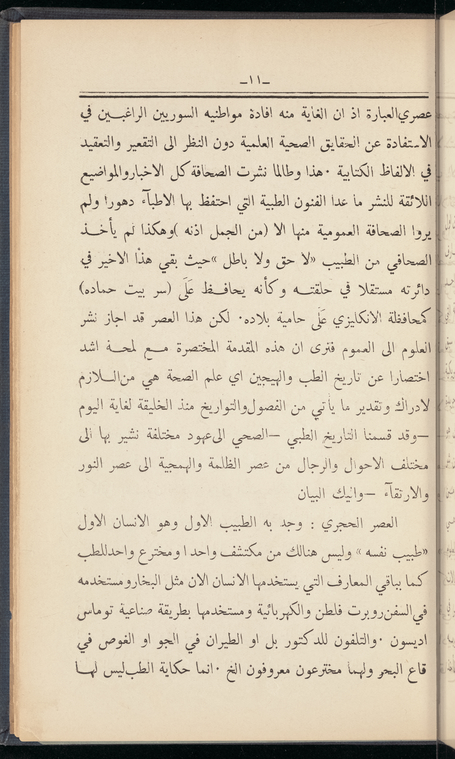 -١١-
عصري العبارة اذ ان الغاية منه افادة مواطنيه السوريين الراغبين في
الاستفادة عن الحقايق الصحية العلمية دون النظر الى التقعير والتعقيد
في الالفاظ الكتابية ٠ هذا وطالما نشرت الصحافة كل الاخبار والمواضيع
اللائقة للنشر ما عدا الفنون الطبية التي احتفظ بها الاطبآء دهورا ولم
يروا الصحافة العمومية منها الا (من الجمل اذنه )وهكذا لم يأخذ
الصحافي من الطبيب «لا حق ولا باطل »حيث بقي هذا الاخير في
دائرته مستقلا في حلقته وكأنه يحافظ عَلَى (سر بيت حماده)
كمحافظة الانكليزي عَلَى حامية بلاده. لكن هذا العصر قد اجاز نشر
العلوم الى العموم فترى ان هذه المقدمة المختصرة مع لمحة اشد
اختصارا عن تاريخ الطب والهيجين اي علم الصحة هي من اللازم
لادراك وتقدير ما يأتي من الفصول والتواريخ منذ الخليقة لغاية اليوم
–وقد قسمنا التاريخ الطبي –الصحي الى عهود مختلفة نشير بها الى
مختلف الاحوال والرجال من عصر الظلمة والهمجية الى عصر النور
والارتقآء –واليك البيان
العصر الحجري : وجد به الطبيب الاول وهو الانسان الاول
«طبيب نفسه » وليس هنالك من مكتشف واحد او مخترع واحد للطب
كما بباقي المعارف التي يستخدمها الانسان الان مثل البخار ومستخدمه
في السفن روبرت فلطن والكهربائية ومستخدمها بطريقة صناعية توماس
اديسون ٠ والتلفون للدكتور بل او الطيران في الجو او الغوص في
قاع البحر ولهما مخترعون معروفون الخ ٠ انما حكاية الطب ليس لها